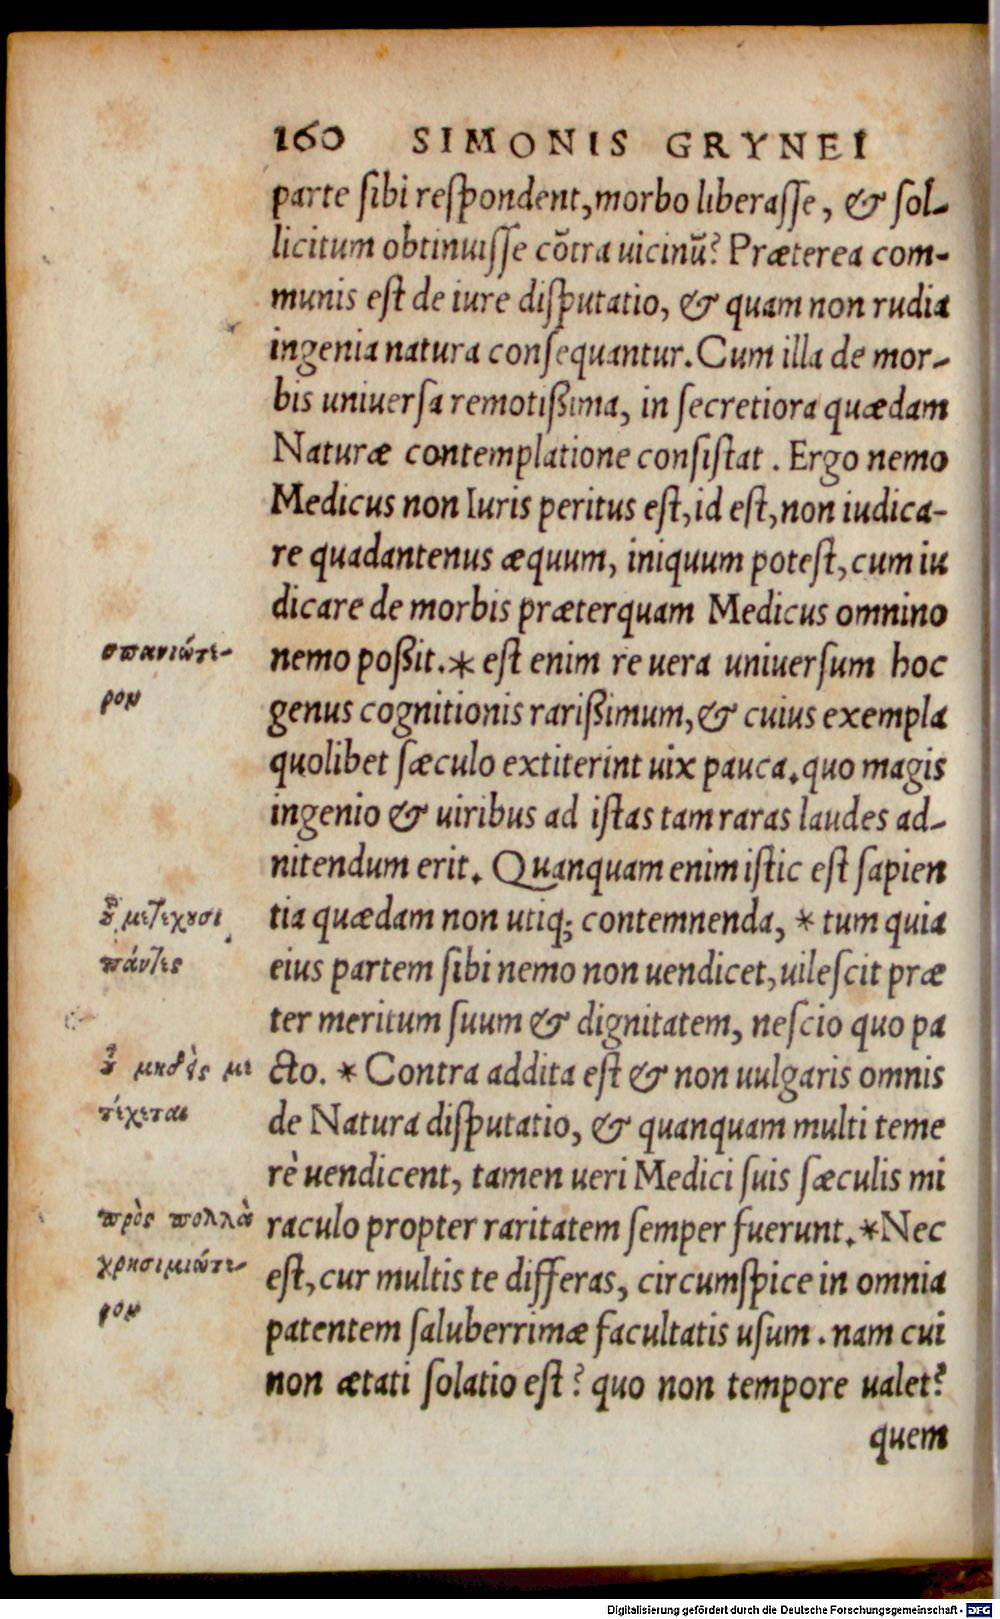 160 SIMONIS GRYNEI
parte sibi respondent, morbo liberasse, & sol-
licitum obtinuisse cōtra uicinū? Præterea com-
munis est de iure disputatio, & quam non rudia
ingenia natura consequantur. Cum illa de mor-
bis uniuersa remotißima, in secretiora quædam
Naturæ contemplatione consistat. Ergo nemo
Medicus non Iuris peritus est, id est, non iudica-
re quadantenus æquum, iniquum potest, cum iu
dicare de morbis præterquam Medicus omnino
σπανιώτε-
ρον
nemo poßit. * est enim re uera uniuersum hoc
genus cognitionis rarißimum, & cuius exempla
quolibet sæculo extiterint uix pauca. quo magis
ingenio & uiribus ad istas tam raras laudes ad-
nitendum erit. Quanquam enim istic est sapien
οὗ μετέχουσι
πάντες
tia quædam non utiq; contemnenda, * tum quia
eius partem sibi nemo non uendicet, uilescit præ
ter meritum suum & dignitatem, nescio quo pa
οὗ μηδεὶς με
τέχεται
cto. * Contra addita est & non uulgaris omnis
de Natura disputatio, & quanquam multi teme
rè uendicent, tamen ueri Medici suis sæculis mi
πρὸς πολλὰ
χρησιμιώτε-
ρον
raculo propter raritatem semper fuerunt. * Nec
est, cur multis te differas, circumspice in omnia
patentem saluberrimæ facultatis usum. nam cui
non ætati solatio est? quo non tempore ualet?
quem
Digitalisierung gefördert durch die Deutsche Forschungsgemeinschaft - DFG